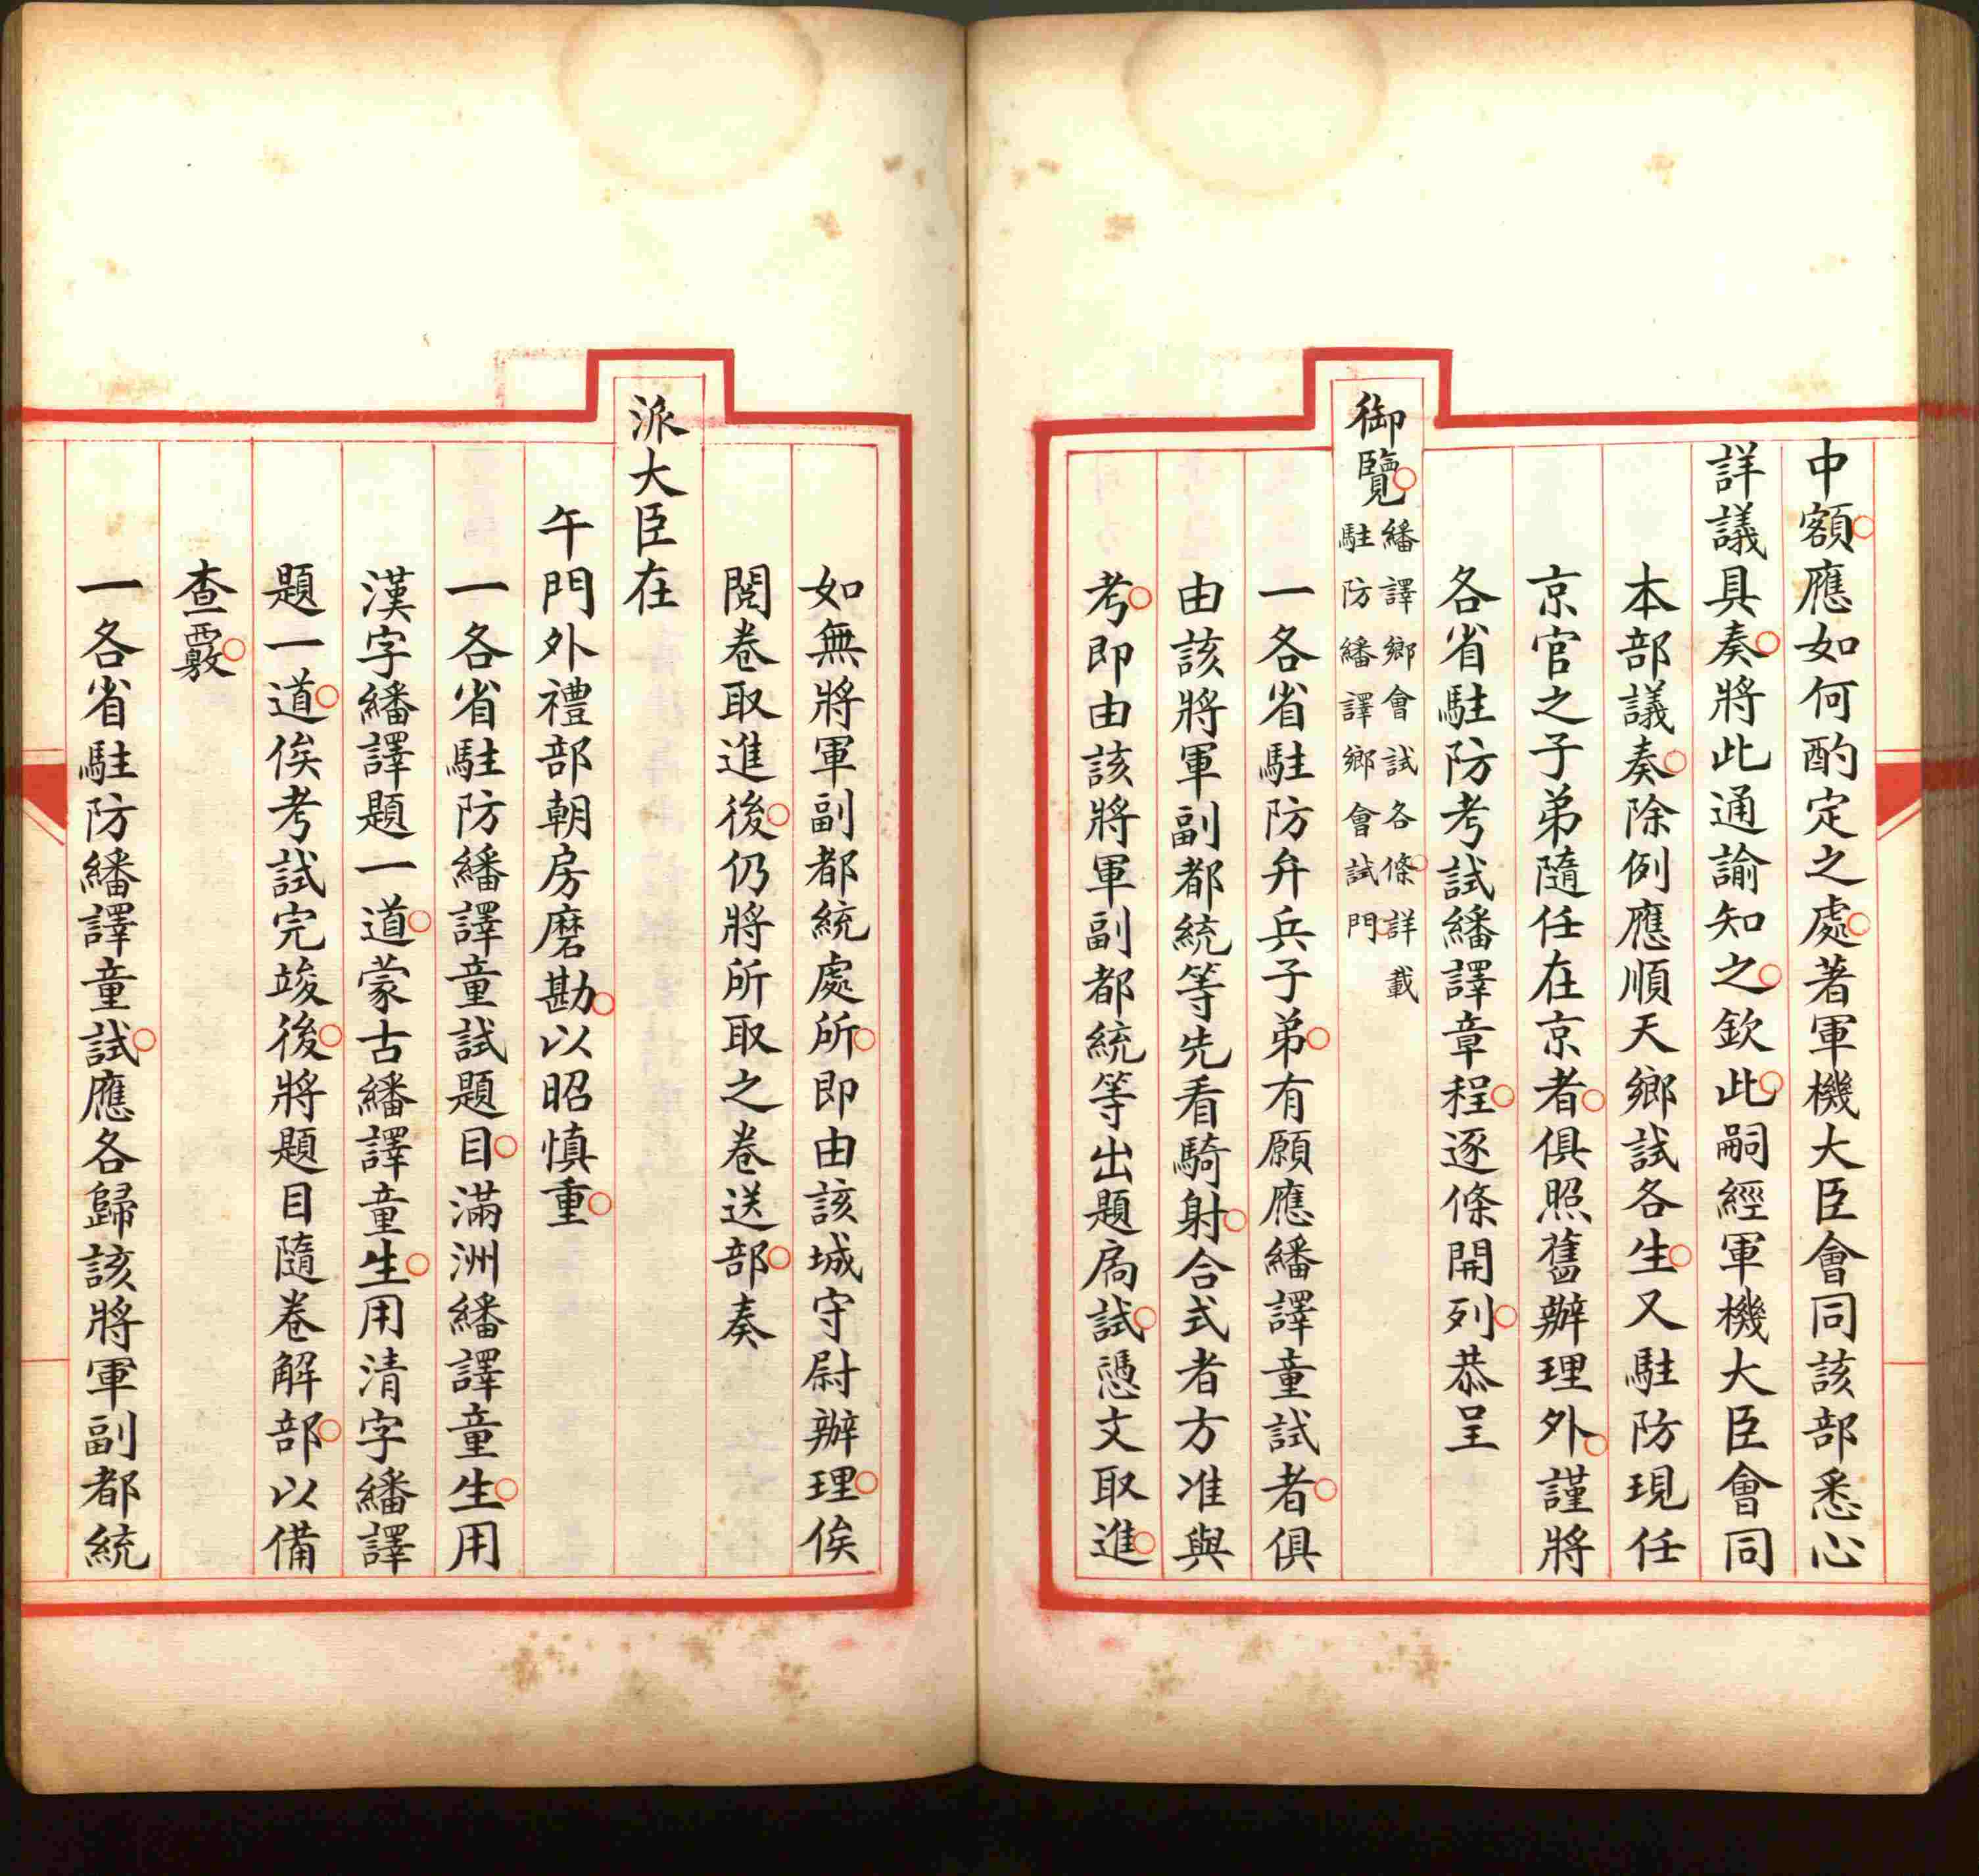 中額應如何酌定之處著軍機大臣會同該部悉心
詳議具奏將此通諭知之欽此嗣經軍機大臣會同
本部議奏除例應順天鄉試各生又駐防現任
京官之子弟隨任在京者俱照舊辦理外謹將
各省駐防考試繙譯章程逐條開列恭呈
御覽
繙譯鄉會試各條詳載
駐防繙譯鄉會試門
一各省駐防弁兵子弟有願應繙譯童試者俱
由該將軍副都統等先看騎射合式者方准與
考即由該將軍副都統等出題扃試憑文取進
如無將軍副都統處所即由該城守尉辦理俟
閱卷取進後仍將所取之卷送部奏
派大臣在
午門外禮部朝房磨勘以昭慎重
一各省駐防繙譯童試題目滿洲繙譯童生用
漢字繙譯題一道蒙古繙譯童生用清字繙譯
題一道俟考試完竣後將題目隨卷解部以備
查覈
一各省駐防繙譯童試應各歸該將軍副都統